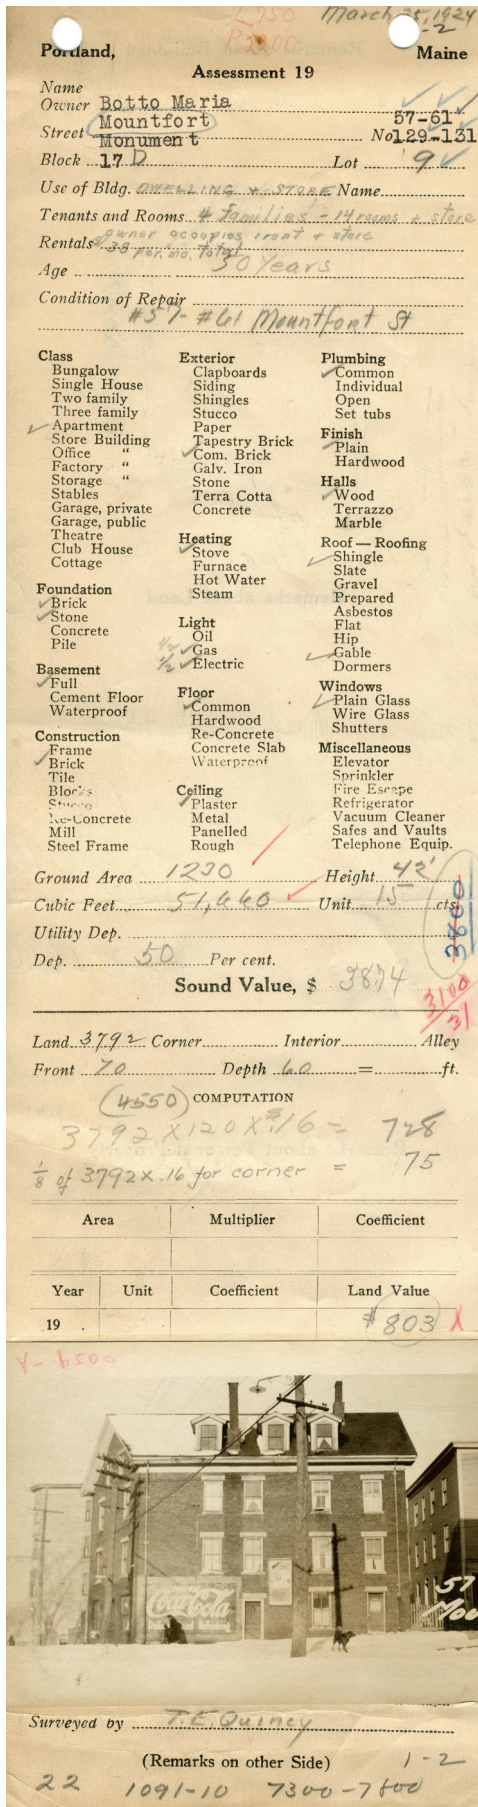 L 950
March 25, 1924
B 2200
1-2
Portland, Maine
Assessment 19
Name
Owner Botto Maria
57-61
Street Mountfort
Monument No 129-131
Block 17 D Lot 9
Use of Bldg. DWELLING & STORE Name
Tenants and Rooms 4 families - 14 rooms & store
Rentals owner occupies front & store
$38 per. mo. Total
Age 30 Years
Condition of Repair
#57- #61 Mountfort St
Class
Bungalow
Single House
Two family
Three family
Apartment
Store Building
Office "
Factory "
Storage "
Stables
Garage, private
Garage, public
Theatre
Club House
Cottage
Foundation
Brick
Stone
Concrete
Pile
Basement
Full
Cement Floor
Waterproof
Construction
Frame
Brick
Tile
Blocks
Stucco
Re-Concrete
Mill
Steel Frame
Exterior
Clapboards
Siding
Shingles
Stucco
Paper
Tapestry Brick
Com. Brick
Galv. Iron
Stone
Terra Cotta
Concrete
Heating
Stove
Furnace
Hot Water
Steam
Light
Oil
1/2 Gas
1/2 Electric
Floor
Common
Hardwood
Re-Concrete
Concrete Slab
Waterproof
Ceiling
Plaster
Metal
Panelled
Rough
Plumbing
Common
Individual
Open
Set tubs
Finish
Plain
Hardwood
Halls
Wood
Terrazzo
Marble
Roof — Roofing
Shingle
Slate
Gravel
Prepared
Asbestos
Flat
Hip
Gable
Dormers
Windows
Plain Glass
Wire Glass
Shutters
Miscellaneous
Elevator
Sprinkler
Fire Escape
Refrigerator
Vacuum Cleaner
Safes and Vaults
Telephone Equip.
Ground Area 1230 Height 42'
Cubic Feet 51,660 Unit 15 cts.
3800
Utility Dep.
Dep. 50 Per cent.
Sound Value, $ 3874
3100
31
Land 3792 Corner Interior Alley
Front 70 Depth 60 = ft.
(4550) COMPUTATION
3792 X 120 X .16 = 728
1/8 of 3792 X .16 for corner = 75
Area Multiplier Coefficient
Year Unit Coefficient Land Value
19 . $803 X
Y- 6500
Coca-Cola
57
Surveyed by T.E. Quincy
(Remarks on other Side)
1-2
22 1091-10 7300-7800